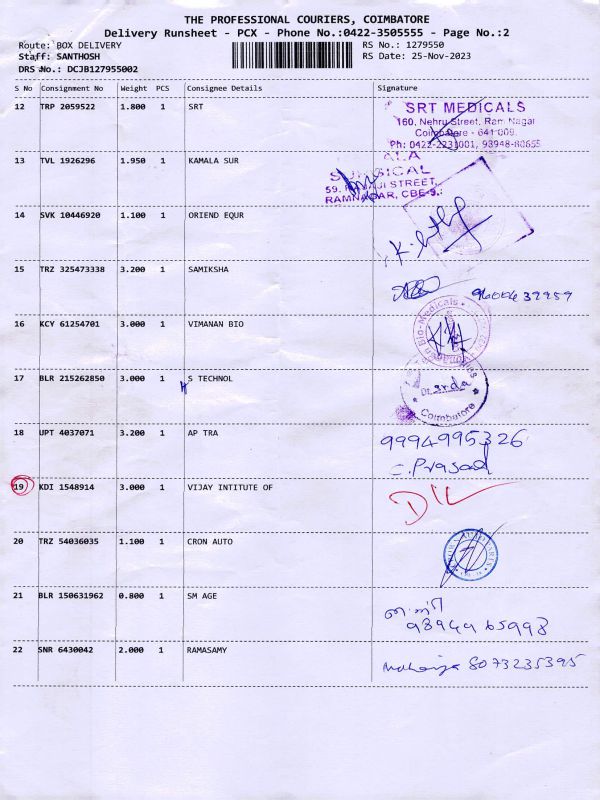 THE PROFESSIONAL COURIERS, COIMBATORE
Delivery Runsheet - PCX - Phone No.:0422-3505555 - Page No.:2
Route: BOX DELIVERY RS No.: 1279550
Staff: SANTHOSH RS Date: 25-Nov-2023
DRS No.: DCJB127955002
S No Consignment No Weight PCS Consignee Details Signature
12 TRP 2059522 1.800 1 SRT
SRT MEDICALS
160, Nehru Street, Ram Nagar
Coimbatore - 641 009.
Ph: 0422-2231001, 98948-80655
13 TVL 1926296 1.950 1 KAMALA SUR
SURGICAL
STREET,
RAMNAGAR, CBE-9.
14 SVK 10446920 1.100 1 ORIEND EQUR
15 TRZ 325473338 3.200 1 SAMIKSHA
9600439959
16 KCY 61254701 3.000 1 VIMANAN BIO
Bio-Medicals
17 BLR 215262850 3.000 1 S TECHNOL
Coimbatore
18 UPT 4037071 3.200 1 AP TRA 9994995326
C. Prasad
19 KDI 1548914 3.000 1 VIJAY INTITUTE OF DIL
20 TRZ 54036035 1.100 1 CRON AUTO
21 BLR 150631962 0.800 1 SM AGE
9894965998
22 SNR 6430042 2.000 1 RAMASAMY 8073235395